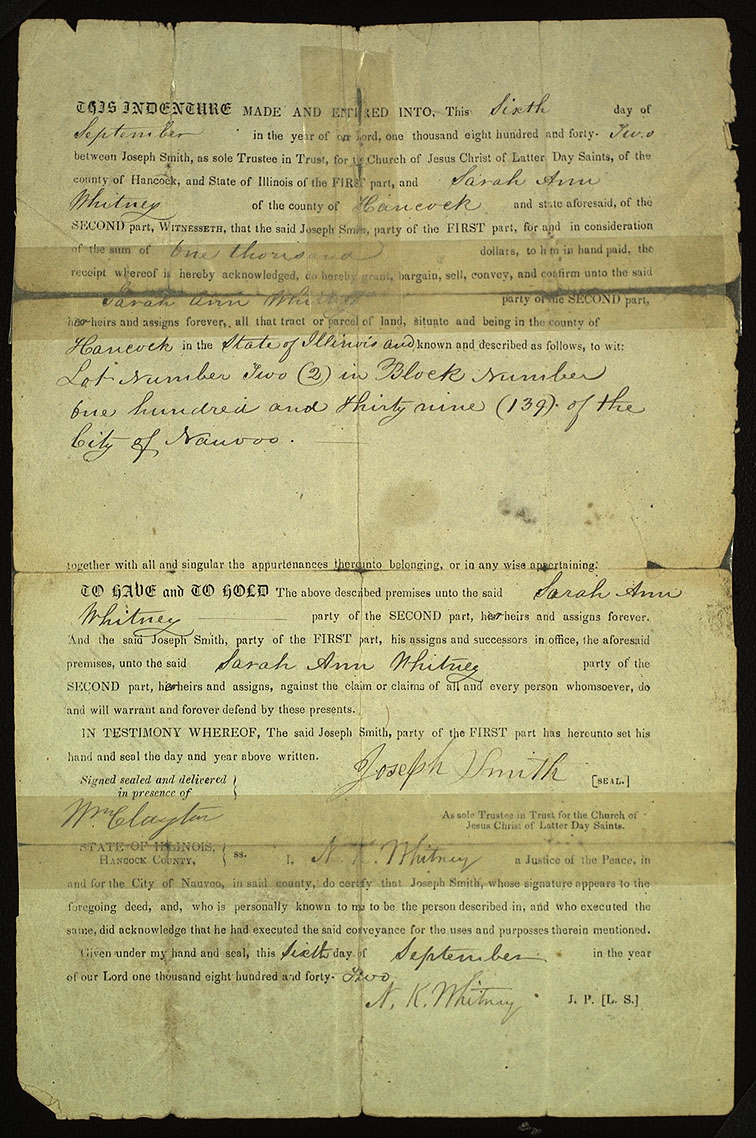 THIS INDENTURE MADE AND ENTERED INTO, This Sixth day of
September in the year of our Lord, one thousand eight hundred and forty- Two
between Joseph Smith, as sole Trustee in Trust, for the Church of Jesus Christ of Latter Day Saints, of the
county of Hancock, and State of Illinois of the FIRST part, and Sarah Ann
Whitney of the county of Hancock and state aforesaid, of the
SECOND part, WITNESSETH, that the said Joseph Smith, party of the FIRST part, for and in consideration
of the sum of One thousand dollars, to him in hand paid, the
receipt whereof is hereby acknowledged, do hereby grant, bargain, sell, convey, and confirm unto the said
Sarah Ann Whitney party of the SECOND part,
her heirs and assigns forever, all that tract or parcel of land, situate and being in the county of
Hancock in the State of Illinois and known and described as follows, to wit:
Lot Number Two (2) in Block Number
One hundred and thirty nine (139) of the
City of Nauvoo.
together with all and singular the appurtenances thereunto belonging, or in any wise appertaining.
TO HAVE and TO HOLD The above described premises unto the said Sarah Ann
Whitney party of the SECOND part, her heirs and assigns forever.
And the said Joseph Smith, party of the FIRST part, his assigns and successors in office, the aforesaid
premises, unto the said Sarah Ann Whitney party of the
SECOND part, her heirs and assigns, against the claim or claims of all and every person whomsoever, do
and will warrant and forever defend by these presents.
IN TESTIMONY WHEREOF, The said Joseph Smith, party of the FIRST part has hereunto set his
hand and seal the day and year above written.
Joseph Smith [SEAL.]
Signed sealed and delivered
in presence of
Wm Clayton
As sole Trustee in Trust for the Church of
Jesus Christ of Latter Day Saints.
STATE OF ILLINOIS,
HANCOCK COUNTY, } ss. I, N. K. Whitney a Justice of the Peace, in
and for the City of Nauvoo, in said county, do certify that Joseph Smith, whose signature appears to the
foregoing deed, and, who is personally known to me to be the person described in, and who executed the
same, did acknowledge that he had executed the said conveyance for the uses and purposses therein mentioned.
Given under my hand and seal, this Sixth day of September in the year
of our Lord one thousand eight hundred and forty- Two
N. K. Whitney J. P. [L. S.]